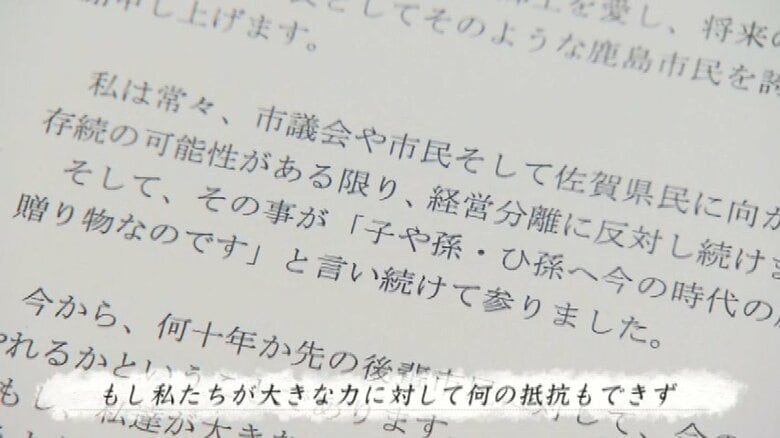 としてそのような鹿島市民を誇
申し上げます。
私は常々、市議会や市民そして佐賀県民に向か
存続の可能性がある限り、経営分離に反対し続けま
そして、その事が「子や孫・ひ孫へ今の時代の
贈り物なのです」と言い続けて参りました。
今から、何十年か先の後輩
やれるかという
もし、私達が大き
もし私たちが大きな力に対して何の抵抗もできず